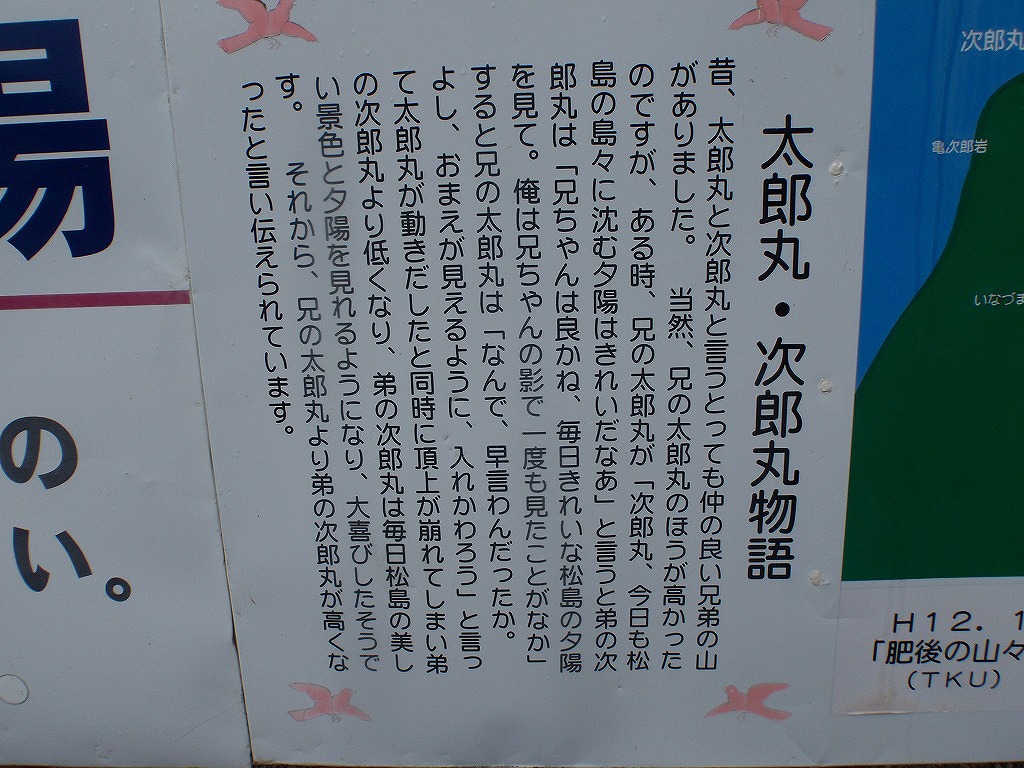 太郎丸・次郎丸物語
昔、太郎丸と次郎丸と言うとっても仲の良い兄弟の山
がありました。　当然、兄の太郎丸のほうが高かった
のですが、ある時、兄の太郎丸が「次郎丸、今日も松
島の島々に沈む夕陽はきれいだなあ」と言うと弟の次
郎丸は「兄ちゃんは良かね、毎日きれいな松島の夕陽
を見て。俺は兄ちゃんの影で一度も見たことがなか」
すると兄の太郎丸は「なんで、早言わんだったか。
よし、おまえが見えるように、入れかわろう」と言っ
て太郎丸が動きだしたと同時に頂上が崩れてしまい弟
の次郎丸より低くなり、弟の次郎丸は毎日松島の美し
い景色と夕陽を見れるようになり、大喜びしたそうで
す。　それから、兄の太郎丸より弟の次郎丸が高くな
ったと言い伝えられています。
次郎丸
亀次郎岩
いなづま
H12．1
「肥後の山々
（TKU）
陽
の
い。